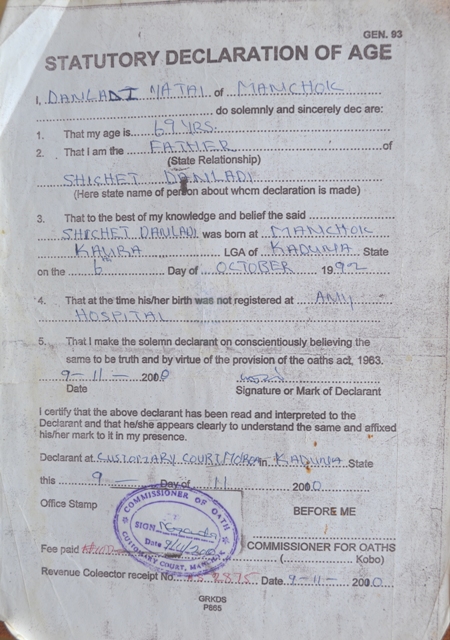 GEN. 93
STATUTORY DECLARATION OF AGE
I, DANLADI YATAI of MANCHOK
do solemnly and sincerely dec are:
1. That my age is 69 YRS.
2. That I am the FATHER of
(State Relationship)
SHICHET DANLADI
(Here state name of person about whcm declaration is made)
3. That to the best of my knowledge and belief the said
SHICHET DANLADI was born at MANCHOK
KAURA LGA of KADUNA State
on the 6th Day of OCTOBER 1992
4. That at the time his/her birth was not registered at ANY
HOSPITAL
5. That I make the solemn declarant on conscientiously believing the
same to be truth and by virtue of the provision of the oaths act, 1963.
9-11- 2000
Date Signature or Mark of Declarant
I certify that the above declarant has been read and interpreted to the
Declarant and that he/she appears clearly to understand the same and affixed
his/her mark to it in my presence.
Declarant at CUSTOMARY COURT MOROA in KADUNA State
this 9 - Day of 11 2000
Office Stamp BEFORE ME
COMMISSIONER OF OATH
SIGN
Date 9/11/2000
CUSTOMARY COURT,
COMMISSIONER FOR OATHS
Fee paid (Kobo)
Revenue Coleector receipt No. 2875 Date 9-11- 2000
GRKDS
P865